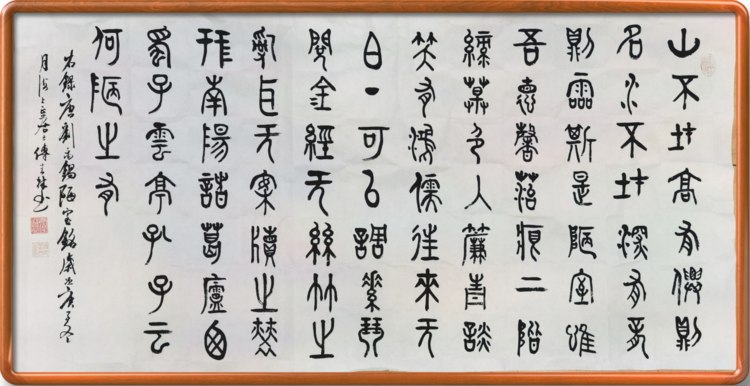 山不在高有僊則
名水不在深有龍
則靈斯是陋室惟
吾德馨苔痕上階
綠草色入簾青談
笑有鴻儒往來无
白丁可以調素琴
閱金經无絲竹之
亂耳无案牘之勞
形南陽諸葛廬西
蜀子雲亭孔子云
何陋之有
右錄唐劉禹錫陋室銘歲次庚子冬
月上居士傅書